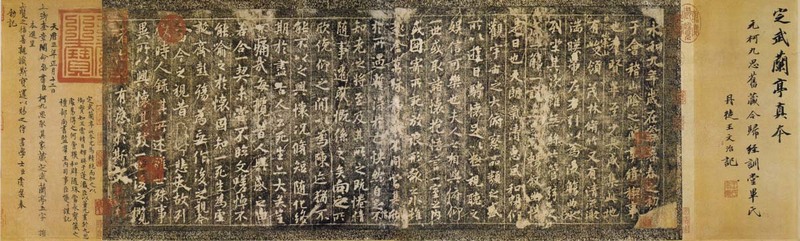 定武蘭亭真本
元柯九思舊藏今歸經訓堂畢氏
丹徒王文治記
永和九年歲在癸丑暮春之初會
于會稽山陰之蘭亭脩稧事
也羣賢畢至少長咸集此地
有崇山峻領茂林脩竹又有清流激
湍暎帶左右引以為流觴曲水
列坐其次雖無絲竹管弦之
盛一觴一詠亦足以暢敘幽情
是日也天朗氣清惠風和暢仰
觀宇宙之大俯察品類之盛
所以遊目騁懷足以極視聽之
娛信可樂也夫人之相與俯仰
一世或取諸懷抱悟言一室之內
或因寄所託放浪形骸之外雖
趣舍萬殊靜躁不同當其欣
於所遇蹔得於己怏然自足不
知老之將至及其所之既惓情
隨事遷感慨係之矣向之所
欣俛仰之閒以為陳迹猶不
能不以之興懷況脩短隨化終
期於盡古人云死生亦大矣豈
不痛哉每攬昔人興感之由
若合一契未嘗不臨文嗟悼不
能喻之於懷固知一死生為虛
誕齊彭殤為妄作後之視今
亦由今之視昔悲夫故列
敘時人錄其所述雖世殊事
異所以興懷其致一也後之攬
者亦將有感於斯文
天曆三年正月十二日
上御奎章閣命參書臣柯九思取其家藏定武蘭亭五字損
本進呈
上覽之稱善親識斯寶還以賜之侍書學士臣虞集奉
勑記